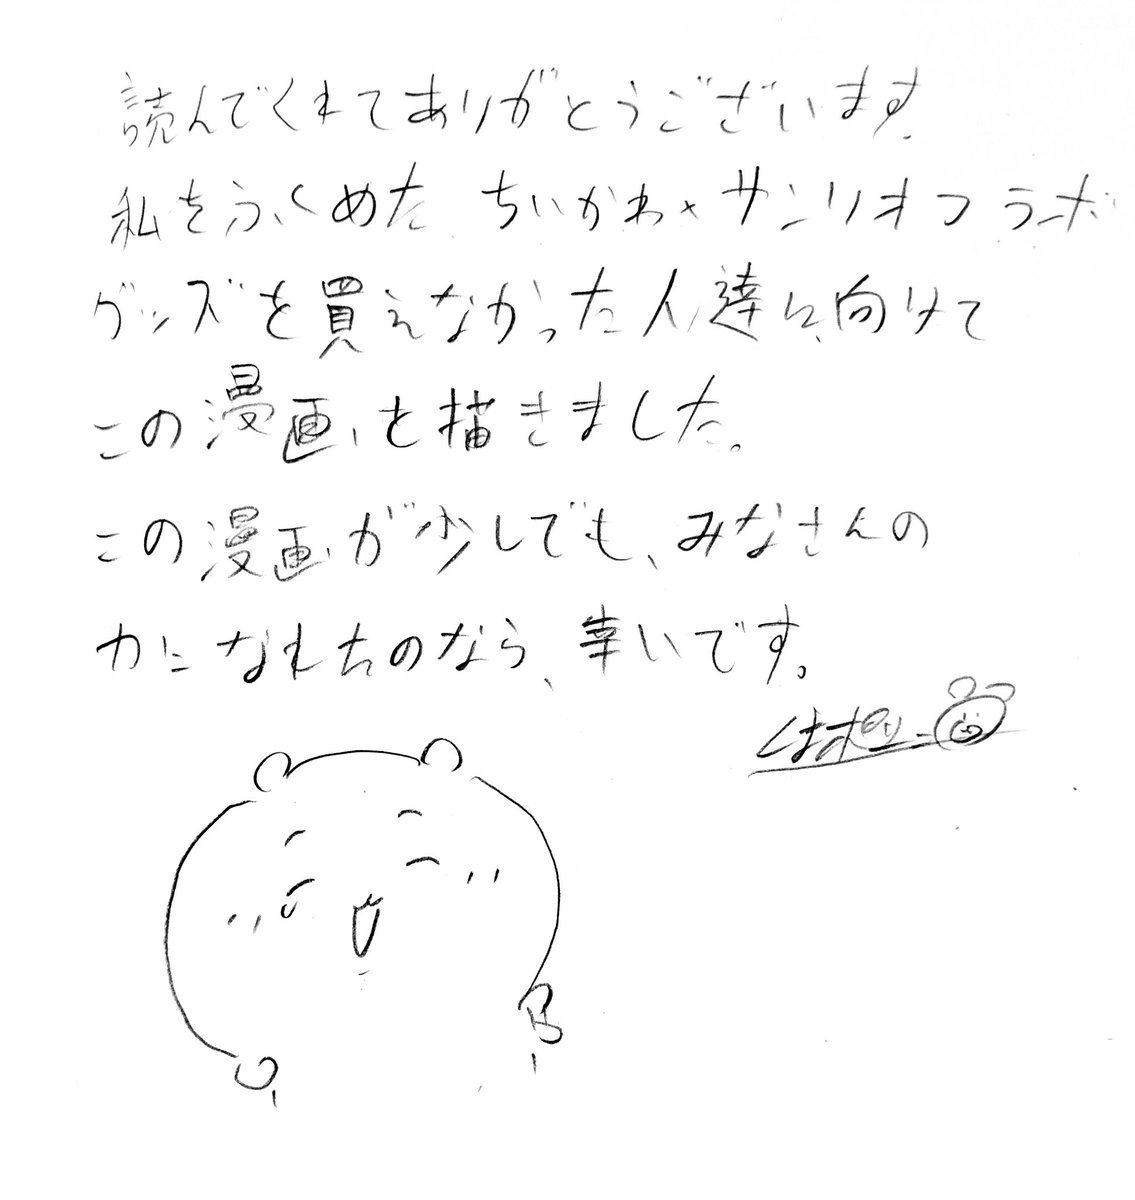 読んでくれてありがとうございます。
私をふくめた ちいかわ×サンリオコラボ
グッズを買えなかった人達に向けて
この漫画を描きました。
この漫画が少しでも、みなさんの
力になれたのなら、幸いです。